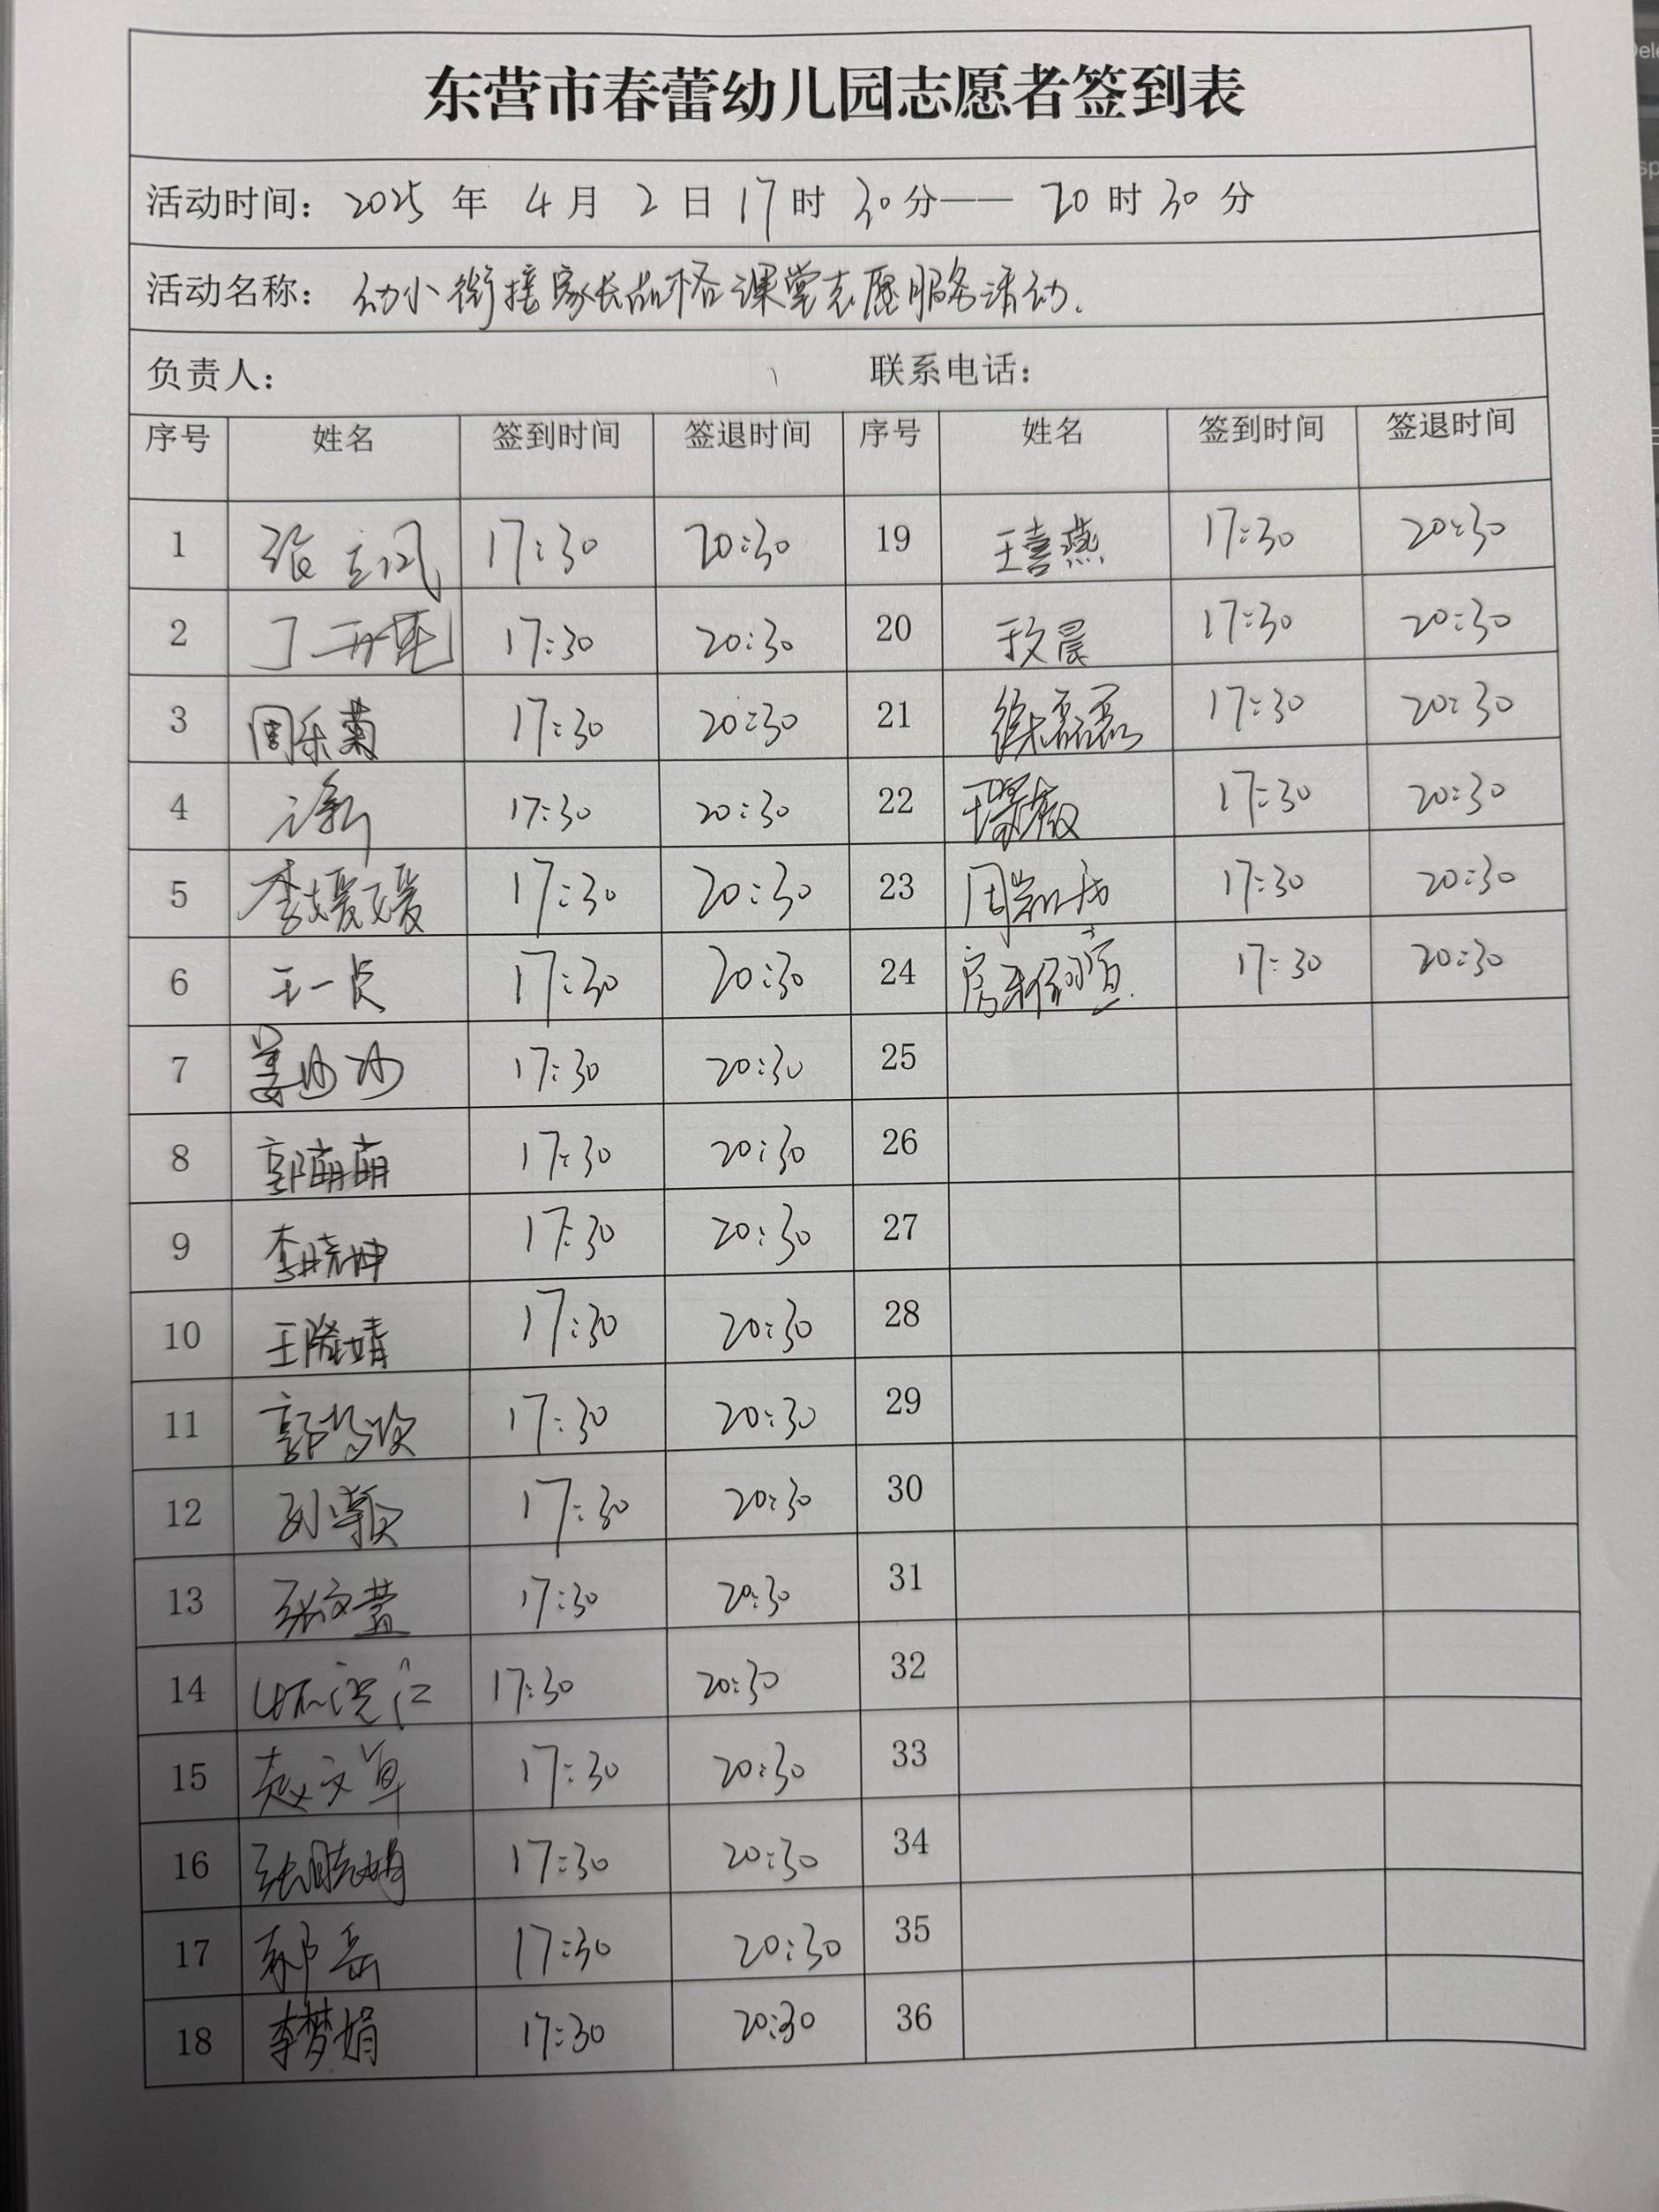 东营市春蕾幼儿园志愿者签到表
活动时间: 2025 年 4 月 2 日 17 时 30 分—— 20 时 30 分
活动名称: 幼小衔接家长品格课堂志愿服务活动.
负责人: 联系电话:
序号 姓名 签到时间 签退时间 序号 姓名 签到时间 签退时间
1 17:30 20:30 19 王喜燕 17:30 20:30
2 17:30 20:30 20 17:30 20:30
3 周乐菊 17:30 20:30 21 徐磊磊 17:30 20:30
4 17:30 20:30 22 17:30 20:30
5 李媛媛 17:30 20:30 23 17:30 20:30
6 王一贞 17:30 20:30 24 17:30 20:30
7 姜沙沙 17:30 20:30 25
8 郭萌萌 17:30 20:30 26
9 李晓坤 17:30 20:30 27
10 王隆婧 17:30 20:30 28
11 17:30 20:30 29
12 刘颖 17:30 20:30 30
13 17:30 20:30 31
14 17:30 20:30 32
15 赵文卓 17:30 20:30 33
16 张晓娟 17:30 20:30 34
17 郝岳 17:30 20:30 35
18 李梦娟 17:30 20:30 36